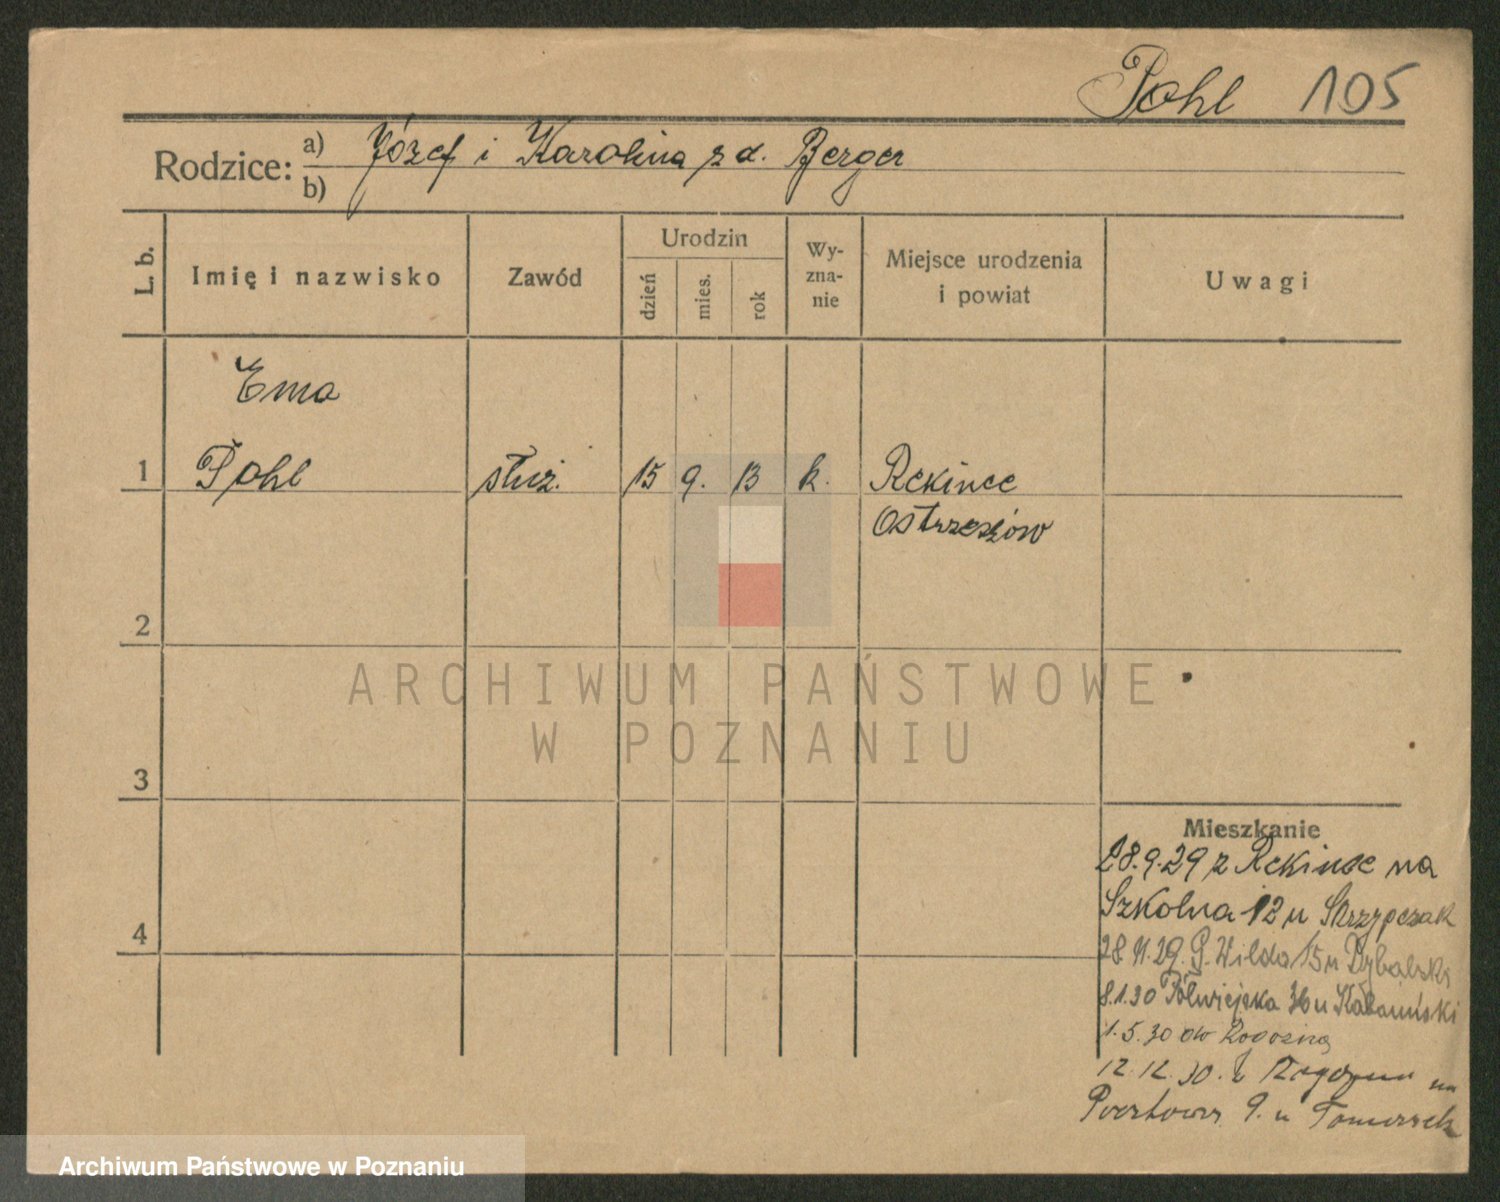 Pohl 105
Rodzice: a) Józef i Karolina z d. Berger
b)
L. b.
Imię i nazwisko
Zawód
Urodzin
dzień
mies.
rok
Wy-
zna-
nie
Miejsce urodzenia
i powiat
Uwagi
Ema
1 Pohl służ. 15 9. 13 k. Rekince
Ostrzeszów
2
ARCHIWUM PAŃSTWOWE
W POZNANIU
3
Mieszkanie
28.9.29 z Rekince na
Szkolna 12 u Skrzypczak
4
28.11.29. G. Wilda 15 u Dybalski
8.1.30 Półwiejska 36 u
1.5.30 do Rogoźna
12.12.30. z Rogoźna na
Pocztowa 9. u Tomaszek
Archiwum Państwowe w Poznaniu